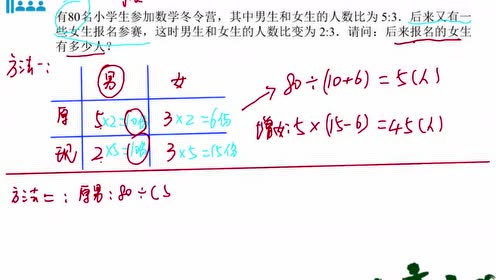 有80名小学生参加数学冬令营，其中男生和女生的人数比为5:3．后来又有一
些女生报名参赛，这时男生和女生的人数比变为2:3．请问：后来报名的女生
有多少人？
方法一：
男 女
原 5×2=10份 3×2=6份
现 2×5=10份 3×5=15份
80÷(10+6)=5(人)
增女:5×(15-6)=45(人)
方法二：原男：80÷(5